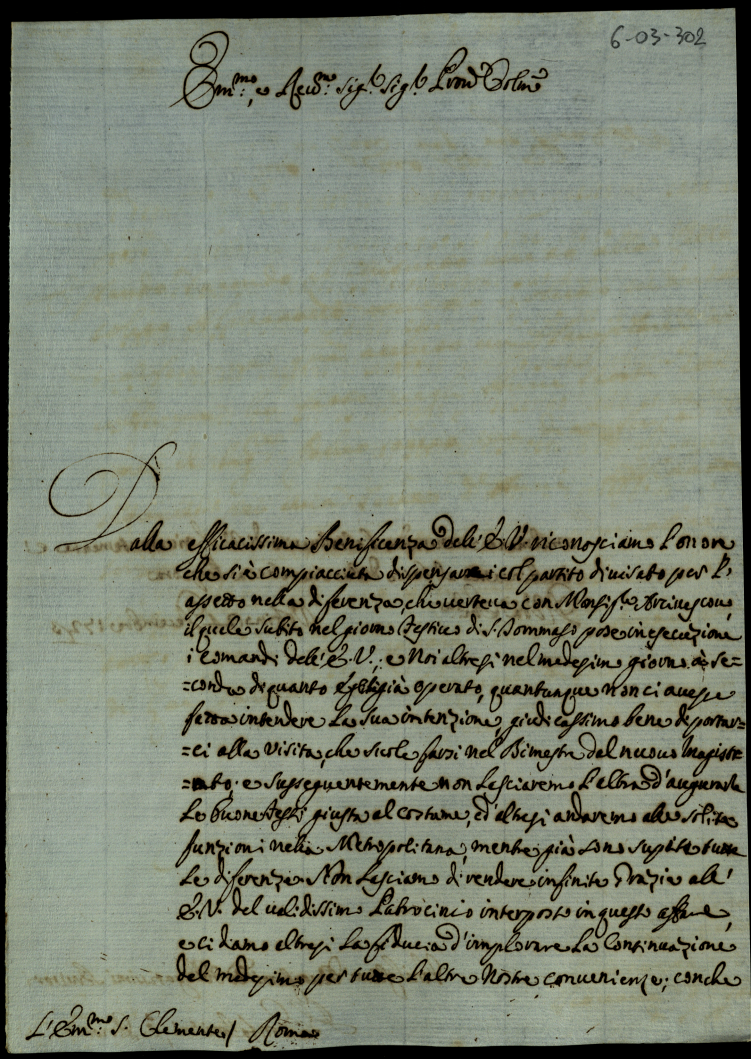 6-03-302
Em.mo, e Rev.mo Sig.r Sig.r Pron Colmo
Dalla efficacissima Beneficenza dell' E. V. riconosciamo l'onore
che si è compiacciuta dispensarci col partito divisato per l'
assetto nella diferenza, che verteva con Monsig.r Arcivescovo,
il quale subito nel giorno festivo di S. Tommaso pose in esecuzione
i comandi dell' E. V., e Noi altresi nel medesimo giorno à se=
=conda di quanto egli già operato, quantunque non ci avesse
fatta intendere la sua intenzione, giudicassimo bene di portar=
=ci alla visita, che suole farsi nel Bimestre dal nuovo Magistr=
=ato; e susseguentemente non lasciaremo l'altra d'augurarle
le buone feste giusta al costume, ed altresi andaremo alle solite
funzioni nella Metropolitana, mentre già sono sopite tutte
le diferenze. Non lasciamo di rendere infinite Grazie all'
E. V. del validissimo Patrocinio interposto in questo affare,
e ci diamo altresi la fiducia d'implorare la continuazione
del medesimo per tutte l'altre Nostre convenienze; con che
L'Em.mo S. Clemente / Roma